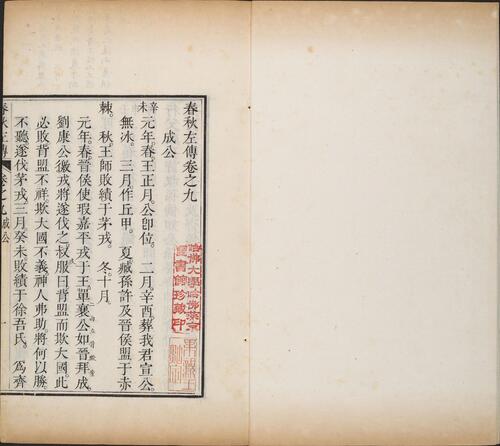 春秋左傳卷之九
成公
辛未 元年春王正月。公卽位。 二月辛酉。葬我君宣公。
無冰。 三月。作丘甲。 夏。臧孫許及晉侯盟于赤
棘。 秋。王師敗績于茅戎。 冬。十月。
元年。春。晉侯使瑕嘉平戎于王。單襄公如晉拜成。
劉康公徼戎將遂伐之叔服曰背盟而欺大國此
必敗背盟不祥。欺大國不義。神人弗助。將何以勝。
不聽遂伐茅戎三月癸未敗績于徐吾氏。 爲齊
春秋左傳 卷之九 成公 一
哈佛大學哈佛燕京圖書館珍藏印